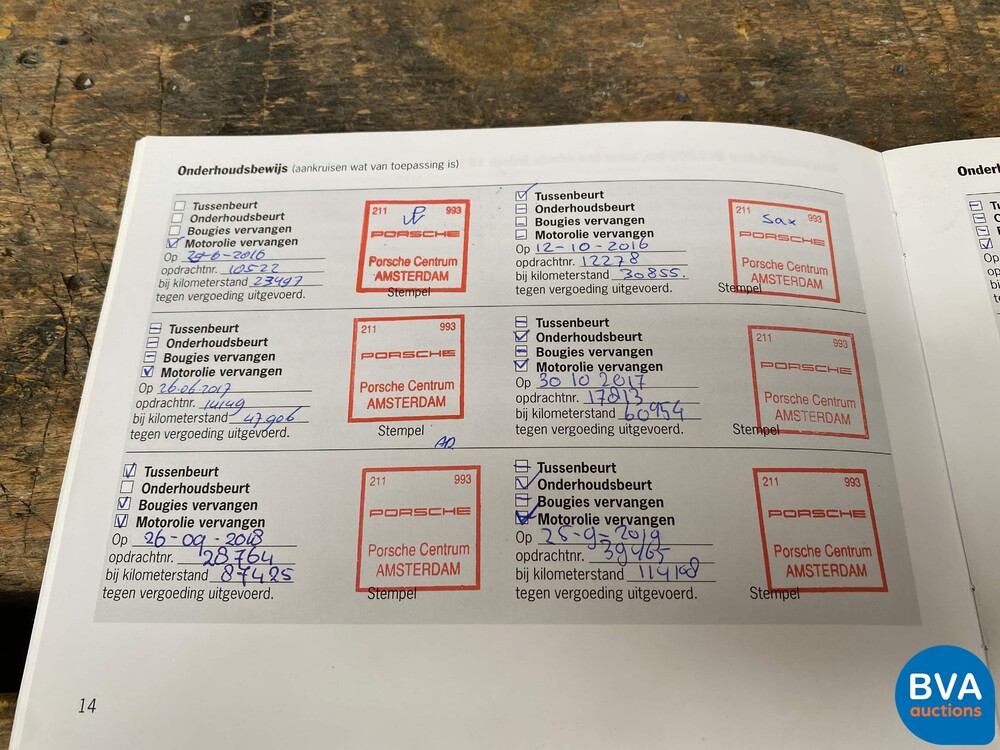 Onderhoudsbewijs (aankruisen wat van toepassing is)
Tussenbeurt
Onderhoudsbeurt
Bougies vervangen
Motorolie vervangen
Op 29-6-2016
opdrachtnr. 10522
bij kilometerstand 23497
tegen vergoeding uitgevoerd.
211 993
PORSCHE
Porsche Centrum
AMSTERDAM
Stempel
Tussenbeurt
Onderhoudsbeurt
Bougies vervangen
Motorolie vervangen
Op 12-10-2016
opdrachtnr. 12278
bij kilometerstand 30855.
tegen vergoeding uitgevoerd.
211 993
Sax
PORSCHE
Porsche Centrum
AMSTERDAM
Stempel
Tussenbeurt
Onderhoudsbeurt
Bougies vervangen
Motorolie vervangen
Op 26-06-2017
opdrachtnr. 14149
bij kilometerstand 47906
tegen vergoeding uitgevoerd.
211 993
PORSCHE
Porsche Centrum
AMSTERDAM
Stempel
Tussenbeurt
Onderhoudsbeurt
Bougies vervangen
Motorolie vervangen
Op 30 10 2017
opdrachtnr. 17813
bij kilometerstand 60954
tegen vergoeding uitgevoerd.
211 993
PORSCHE
Porsche Centrum
AMSTERDAM
Stempel
Tussenbeurt
Onderhoudsbeurt
Bougies vervangen
Motorolie vervangen
Op 26-09-2018
opdrachtnr. 28764
bij kilometerstand 87425
tegen vergoeding uitgevoerd.
211 993
PORSCHE
Porsche Centrum
AMSTERDAM
Stempel
Tussenbeurt
Onderhoudsbeurt
Bougies vervangen
Motorolie vervangen
Op 25-9-2019
opdrachtnr. 39465
bij kilometerstand 114108
tegen vergoeding uitgevoerd.
211 993
PORSCHE
Porsche Centrum
AMSTERDAM
Stempel
14
Onderh
BVA
auctions